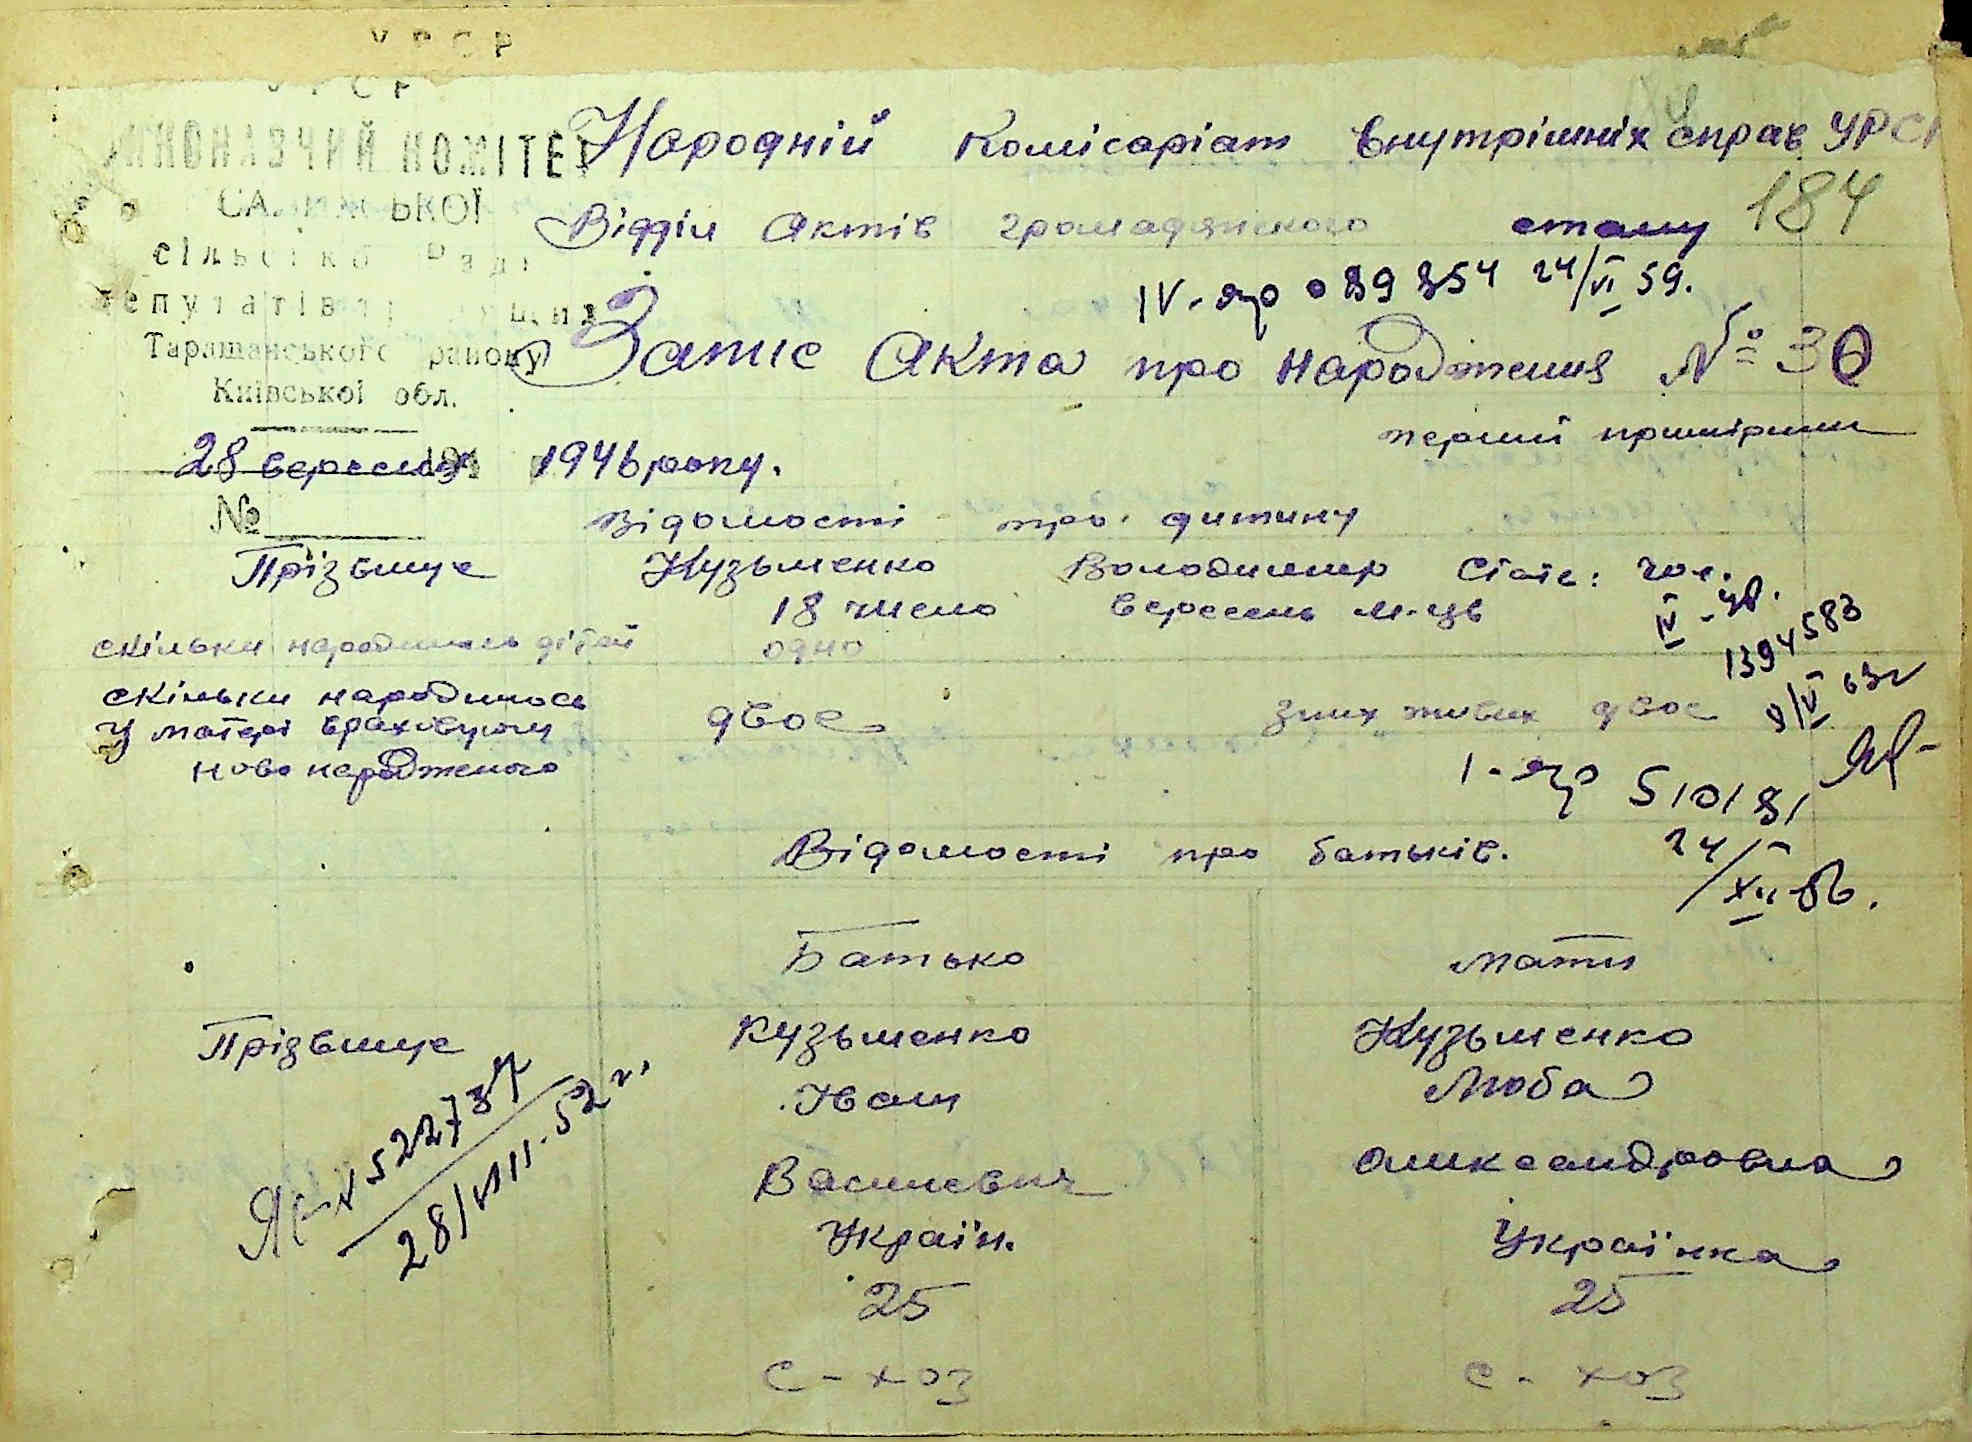 УРСР
УРСР
ВИКОНАВЧИЙ КОМІТЕТ
сільської Ради
депутатів трудящих
Таращанського району
Київської обл.
Народній Комісаріат внутрішніх справ УРСР
Відділ Актів громадянского стану 184
IV-яр 089854 24/VI 59.
Запис Акта про народження № 30
перший примірник
28 вересня 194 1946 року.
№
Відомості про дитину
Прізвище Кузьменко Володимир Стать: чол.
18 число вересень м-ць
IV-УР.
1394583
скільки народилось дітей одно
скільки народилось
у матері врахавуючи двоє з них живих двоє
ново народженого
I-яр 510181
24/XII 86.
Відомості про батьків.
Батько мати
Прізвище Кузьменко Кузьменко
Іван Люба
Васильевич Олександровна
Україн. Українка
25 25
с-хоз с-хоз
28/VIII-52 г.